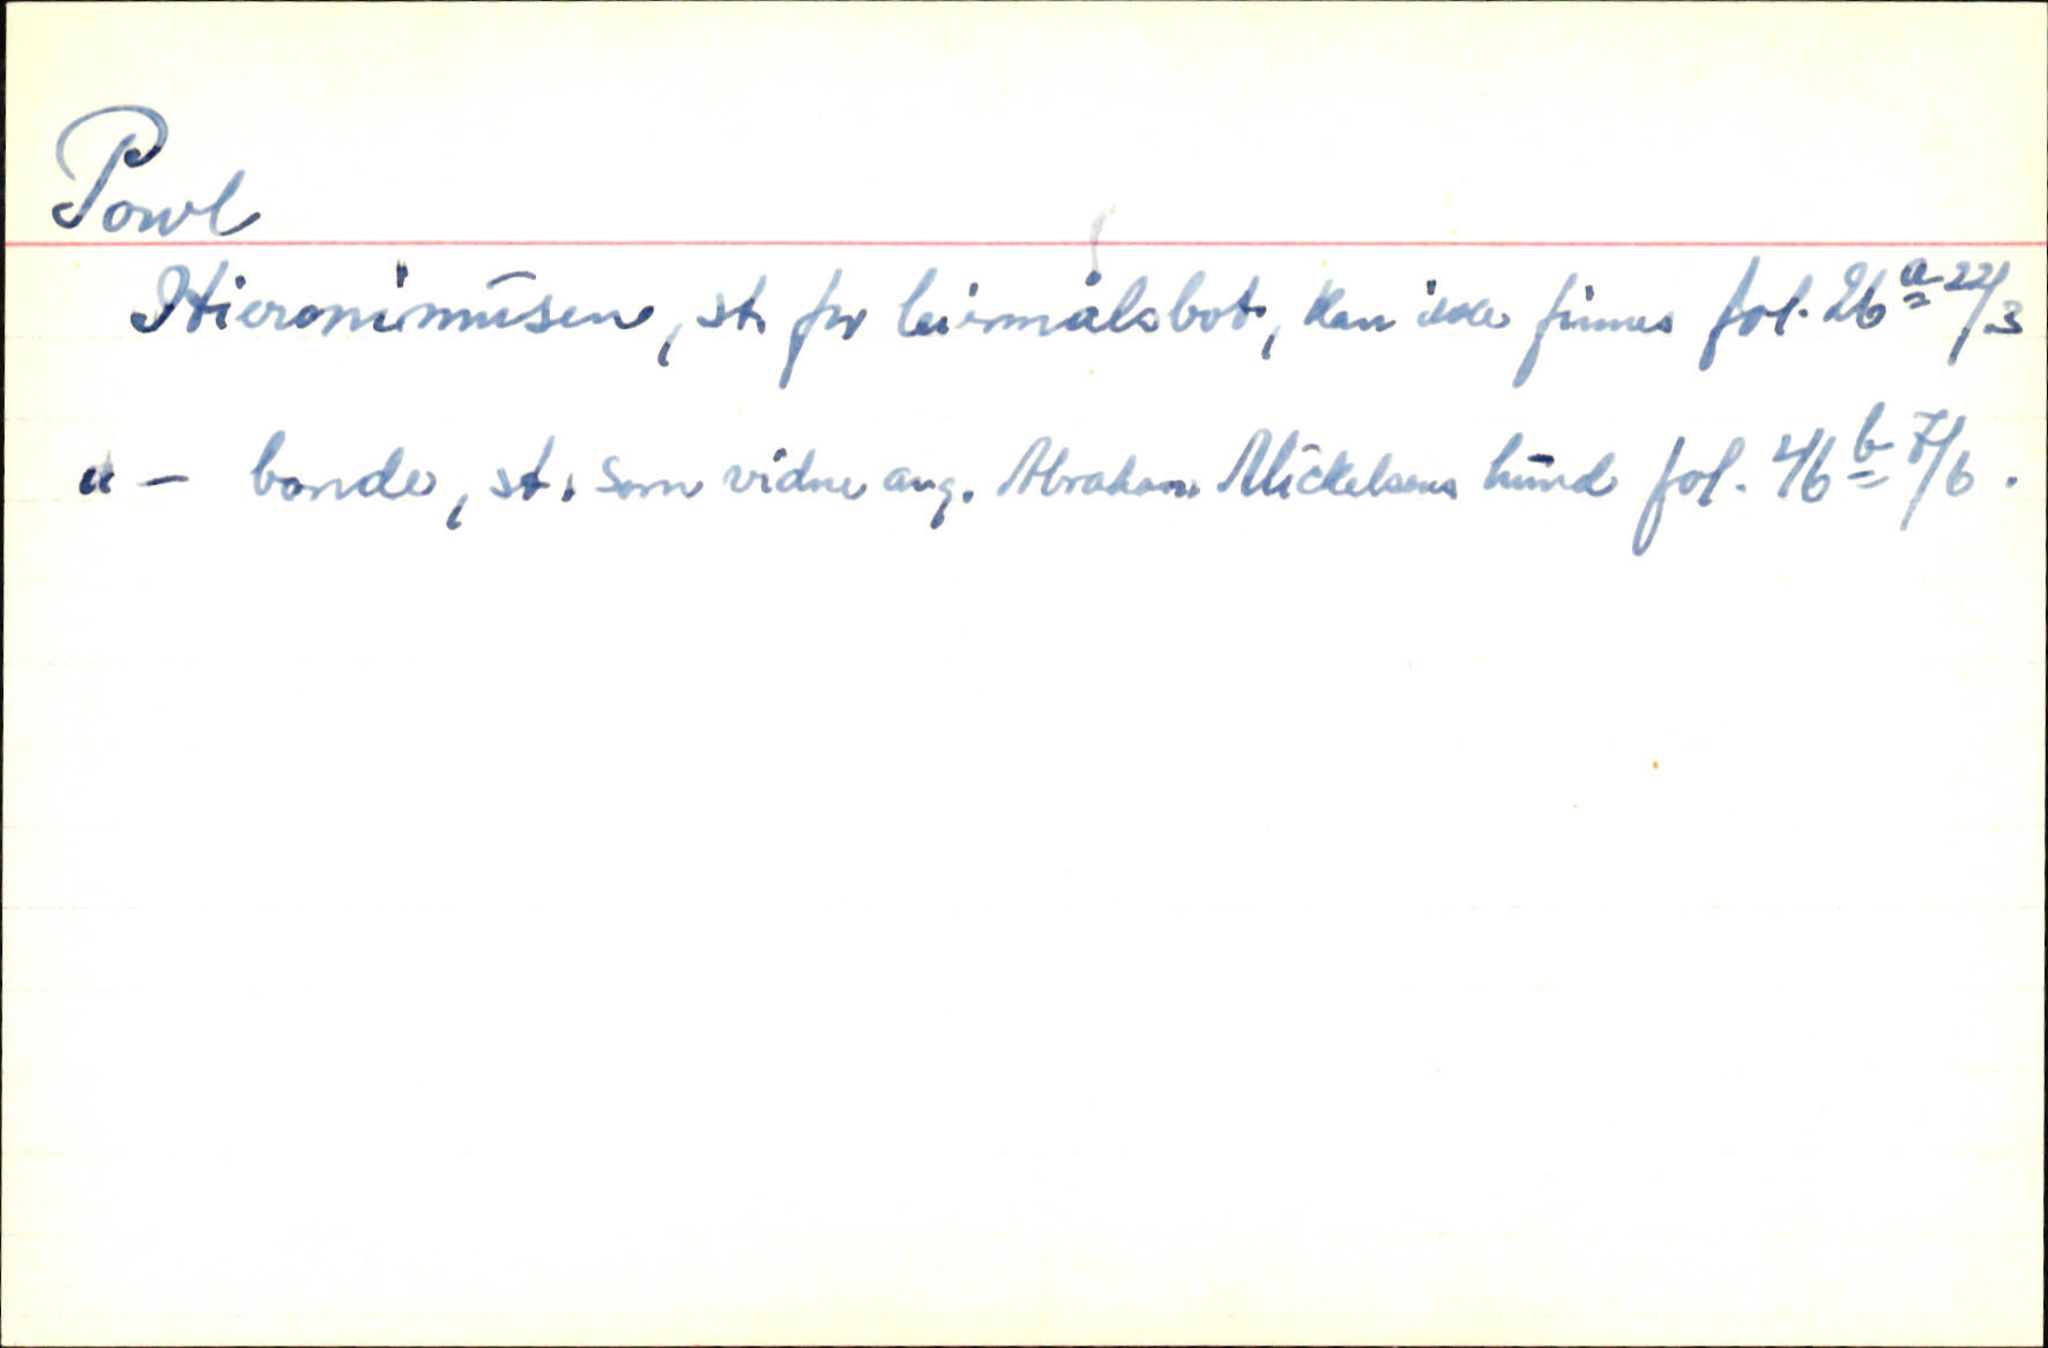 Powl
Hieronimusen, st. for leiermålsbot, kan ikke finnes fol. 26 a 22/3
" - bonde, st. som vidne ang. Abraham Mickelsens hund fol. 46 b 7/6.